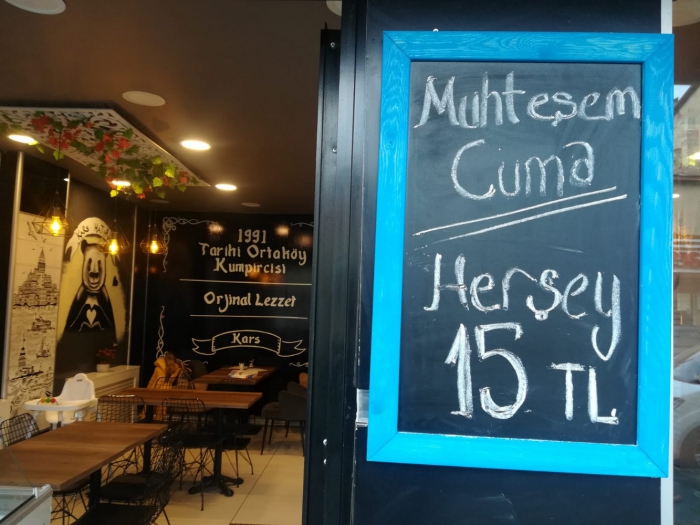 Muhteşem
Cuma
Herşey
15 TL
1991
Tarihi Ortaköy
Kumpircisi
Orjinal Lezzet
Kars